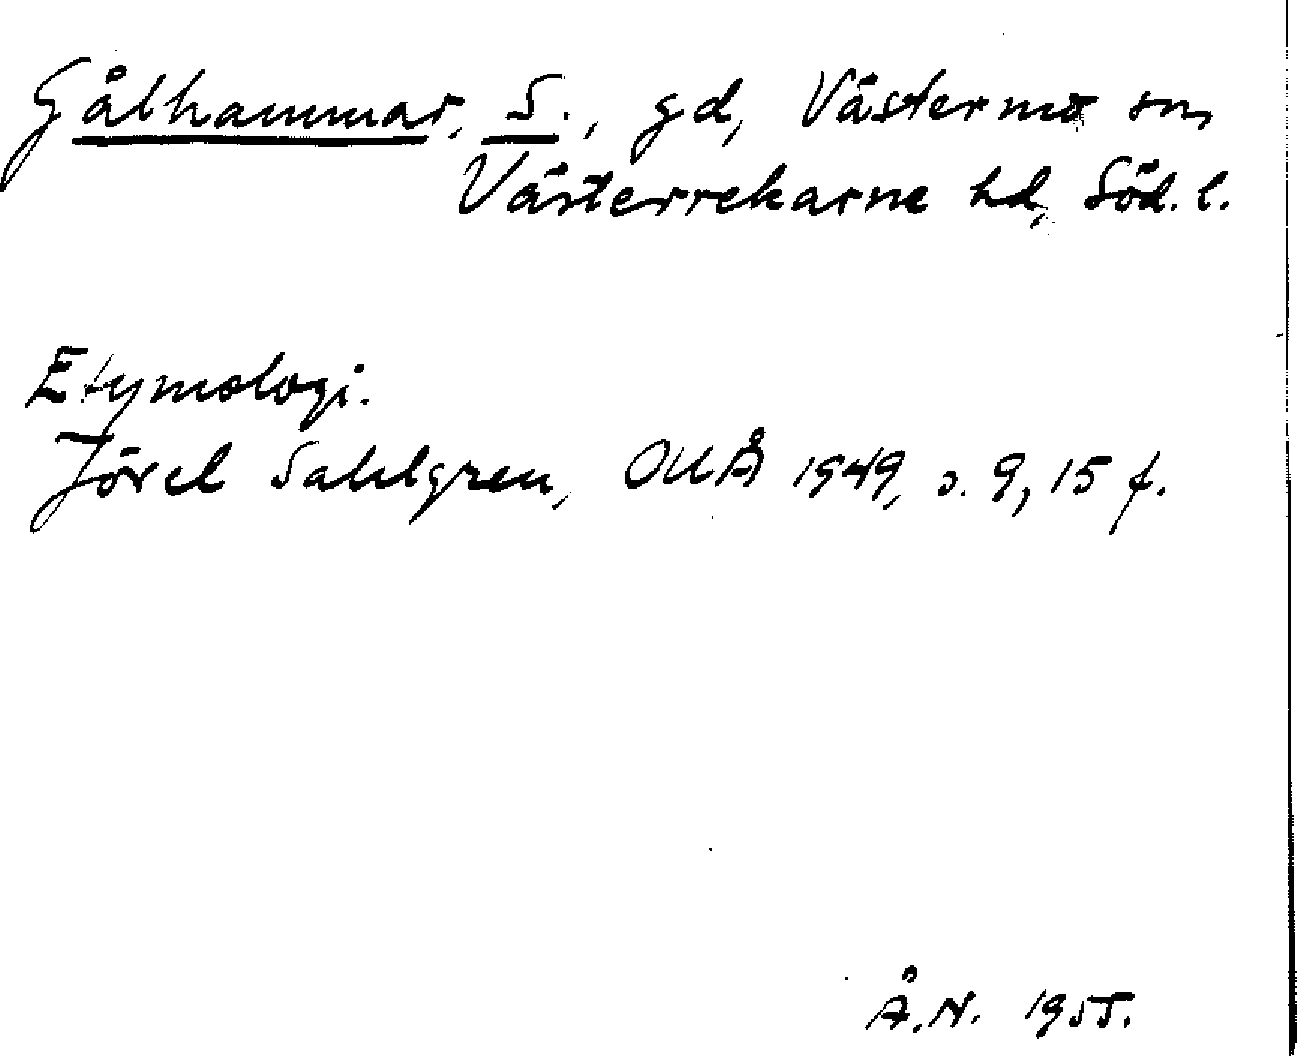 Gålhammar, S., gd, Västermo sn,
Västerrekarne hd, Söd. l.
Etymologi.
Jöran Sahlgren, OUÅ 1949, s. 9, 15 f.
Å.N. 1955.